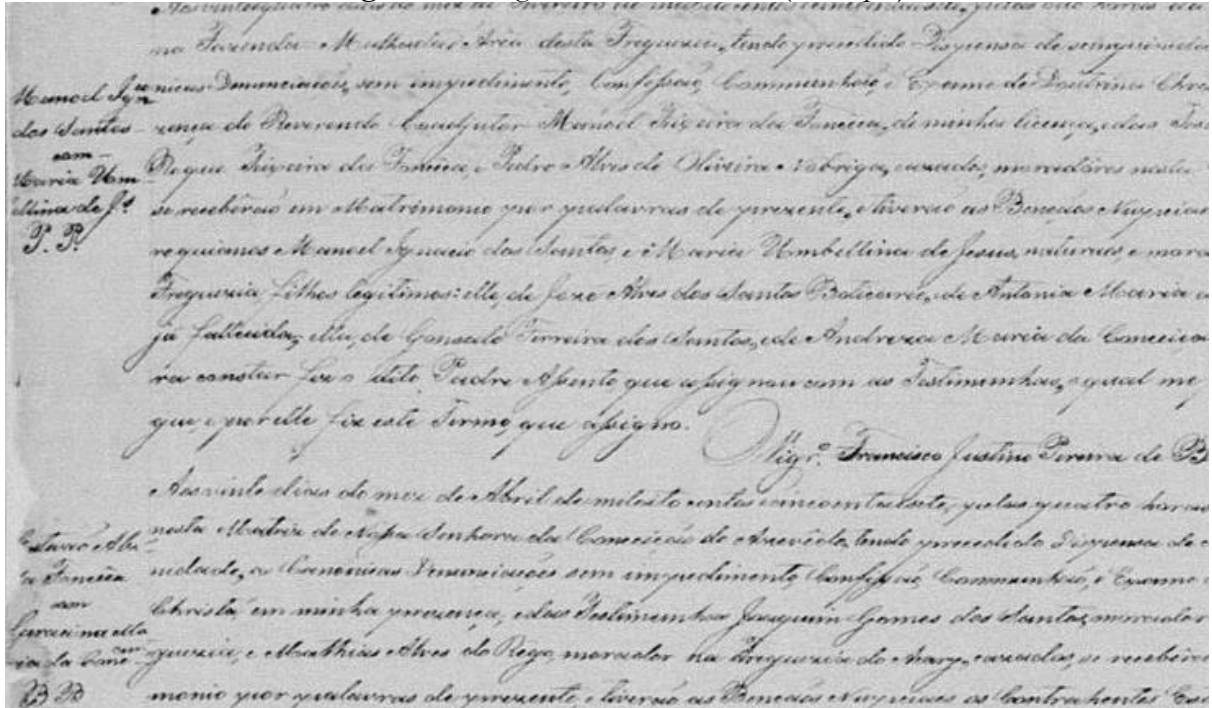 Aos vinte e quatro dias do mez de Fevereiro de mil oito centos cincoenta e sete, pelas oito horas da
na Fazenda Malhada da Area desta Freguezia, tendo precedido Dispensa de
Manoel Ign.
dos Santos
com
Maria Um
bellina de Js.
P. P.
nicas Denunciações, sem impedimento, Confissaõ, Communhaõ, e Exame de Doutrina Chris
zença do Reverendo Coadjutor Manoel Teixeira da Fonsêca, de minha licença, e das Tes
Roque Teixeira da Fonsêca, e Pedro Alves de Oliveira Nobriga, cazados, moradôres nesta
se recebêraõ em Matrimonio por palavras de prezente, e tiveraõ as Bençaõs Nupciaes
roquianos Manoel Ignacio dos Santos, e Maria Umbellina de Jesus, naturaes, e mora
Freguezia, filhos legitimos: elle, de Jozé Alves dos Santos e de Antonia Maria
já fallecida, ella, de Gonsalo Ferreira dos Santos, e de Andreza Maria da Conceiçaõ
ra constar fez o dito Padre Assento que assignou com as Testimunhas, o qual me
gue, e por elle fiz este Termo, que assigno.
Vigr.º Francisco Justino Pereira de B
Aos vinte dias do mez de Abril de mil oito centos cincoenta e sete, pelas quatro horas
nesta Matriz de Nossa Senhora da Conceiçaõ do Azevêdo, tendo precedido Dispensa de
Alv
da Fonsêca
com
Ma
ria da Conc
B B
nidade, as Canonicas Denunciações sem impedimento, Confissaõ, Communhaõ, e Exame
Christã, em minha prezença, e das Testimunhas Joaquim Gomes dos Santos, morador
guezia, e Mathias Alves do Rego, morador na Freguezia do cazados, se recebêraõ
monio por palavras de prezente, e tiveraõ as Bençaõs Nupciaes os Contrahentes